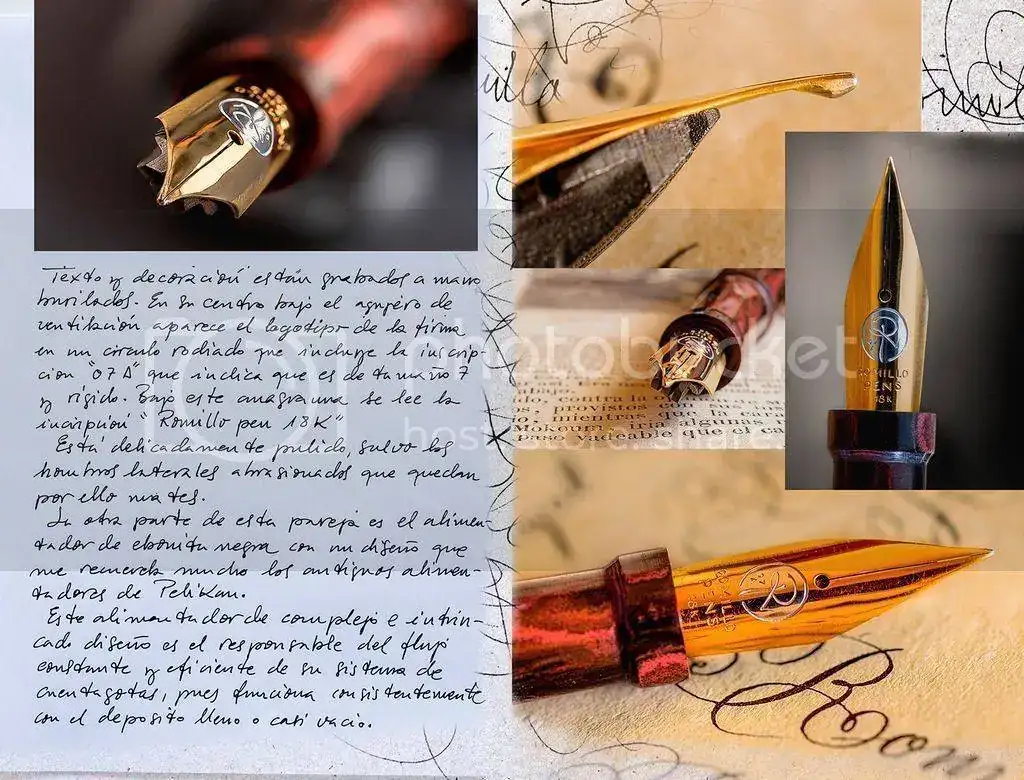 Texto y decoración están grabados a mano
burilados. En su centro bajo el agujero de
ventilación aparece el logotipo de la firma
en un círculo rodiado que incluye la inscrip-
ción "07A" que indica que es de tamaño 7
y rígido. Bajo este anagrama se lee la
incripción "Romillo pen 18K"
Está delicadamente pulido, salvo los
hombros laterales abrasionados que quedan
por ello mates.
La otra parte de esta pareja es el alimen-
tador de ebonita negra con un diseño que
me recuerda mucho los antiguos alimen-
tadores de Pelikan.
Este alimentador de complejo e intrin-
cado diseño es el responsable del flujo
constante y eficiente de su sistema de
cuentagotas, pues funciona consistentemente
con el deposito lleno o casi vacio.
photobucket
contra la
provistos
mientras que
Mokeum iría algunas
paso vadeable que el
R
ROMILLO
PENS
18K
R
ROMILLO
PENS
18K
Rom